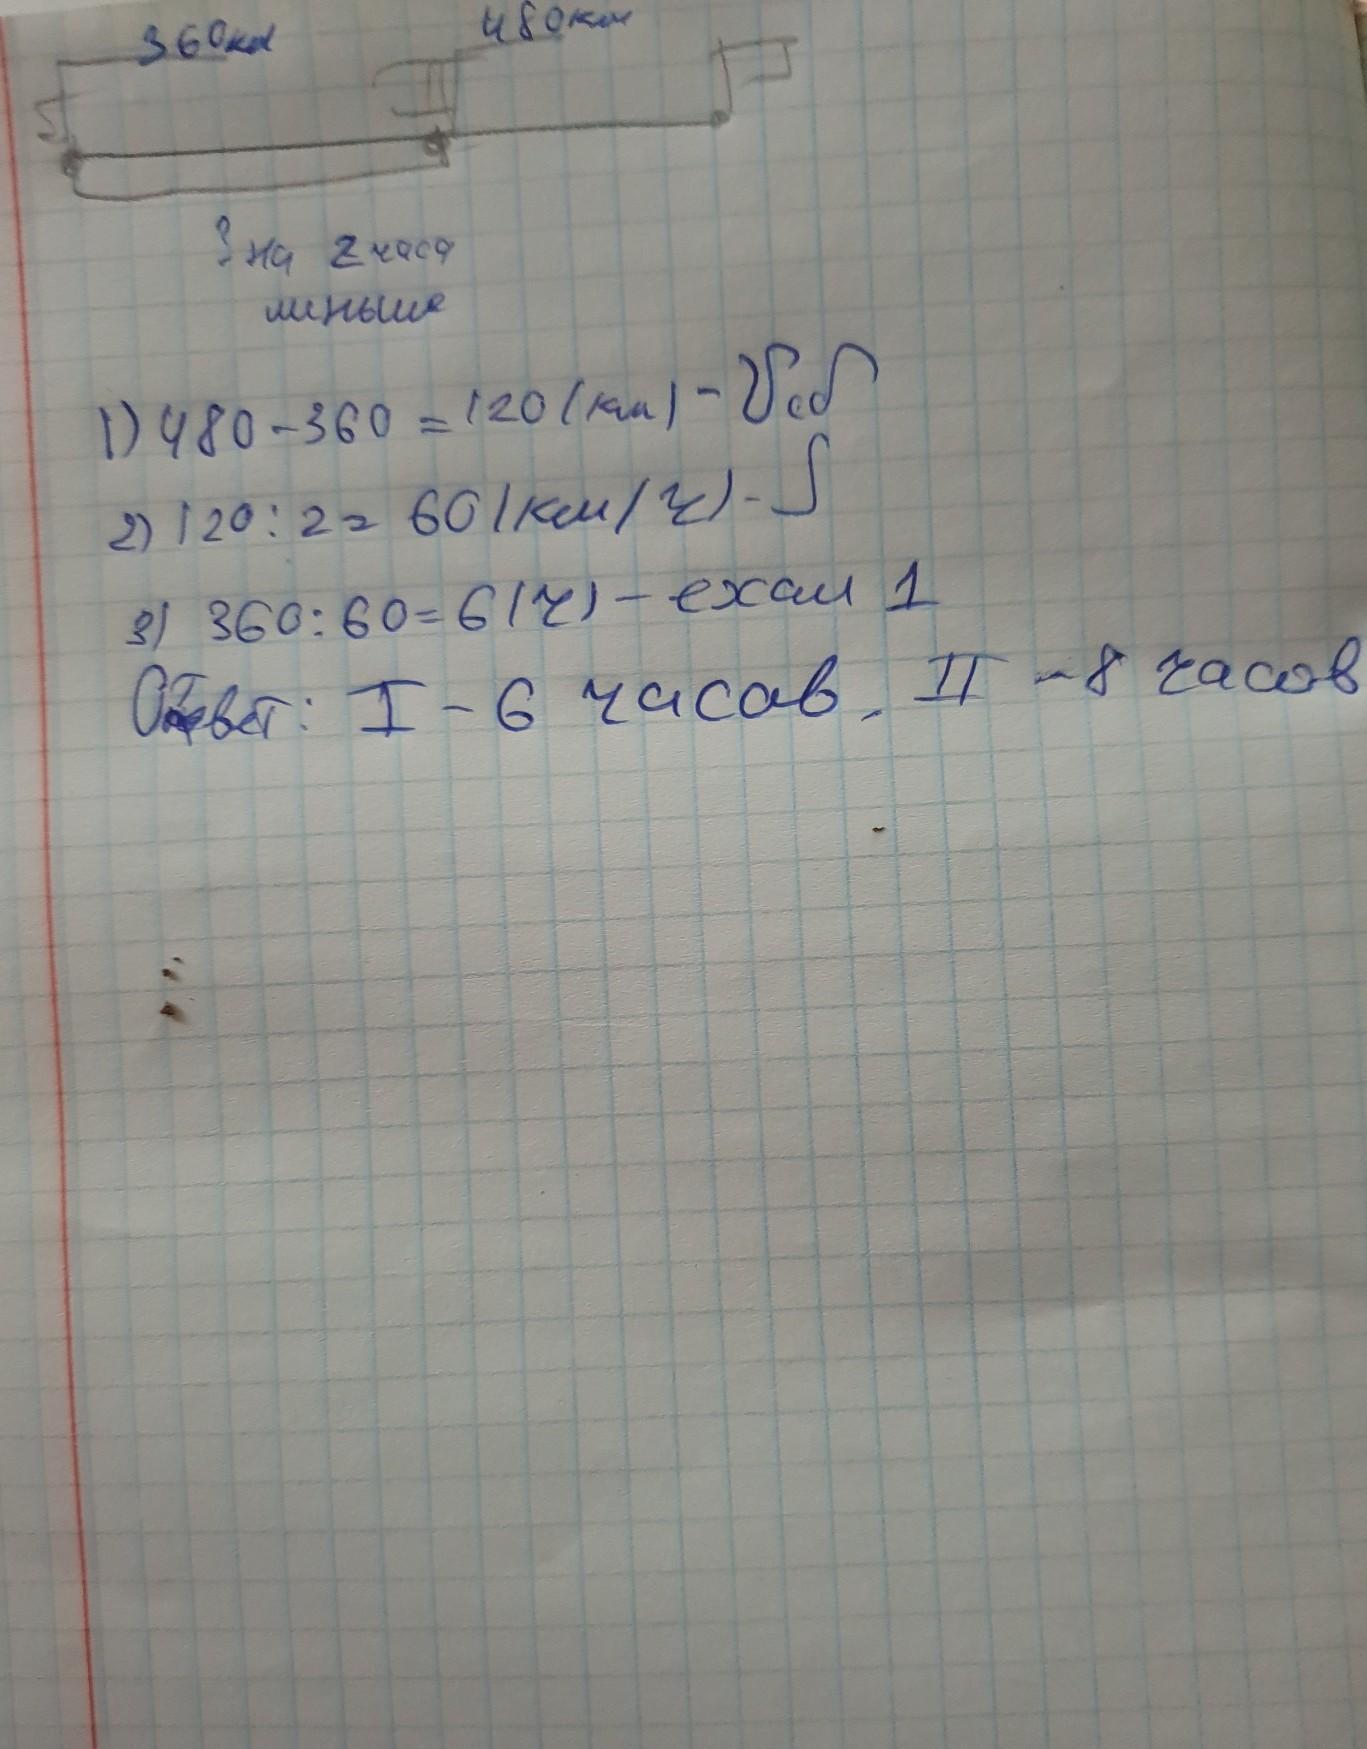 360км 480км
II
? на 2 часа
меньше
1) 480-360=120(км)-Vсб
2) 120:2=60(км/ч)-S
3) 360:60=6(ч)-ехал 1
Ответ: I-6 часав. II-8 часов